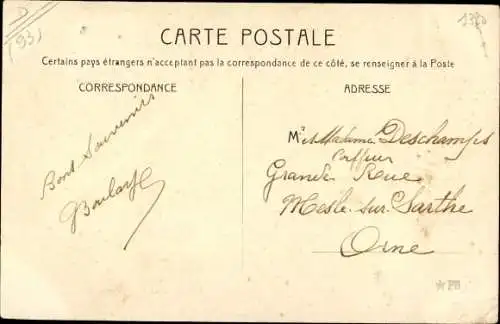 D
(93)
1320
CARTE POSTALE
Certains pays étrangers n'acceptant pas la correspondance de ce côté, se renseigner à la Poste
CORRESPONDANCE
Bons Souvenirs
ADRESSE
M et Madame Deschamps
Coiffeur
Grande Rue
Mesle-sur-Sarthe
Orne